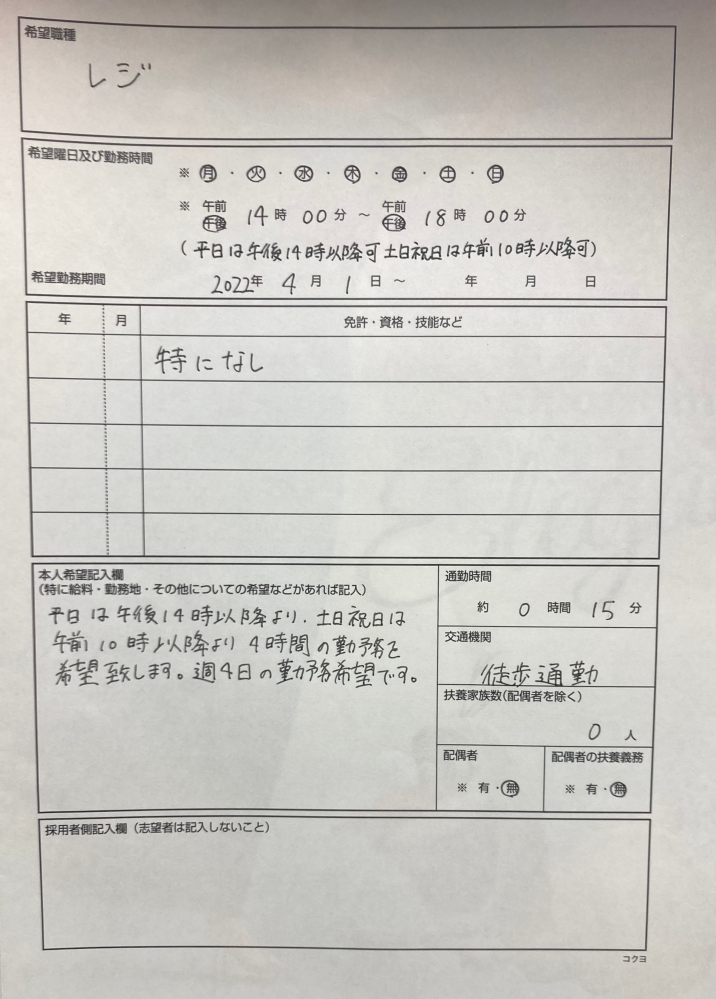 希望職種
レジ
希望曜日及び勤務時間
※ 月・火・水・木・金・土・日
※ 午前 午後 14時 00分 ~ 午前 午後 18時 00分
(平日は午後14時以降可 土日祝日は午前10時以降可)
希望勤務期間 2022年 4月 1日 ~ 年 月 日
年 月 免許・資格・技能など
特になし
本人希望記入欄
(特に給料・勤務地・その他についての希望などがあれば記入)
平日は午後14時以降より、土日祝日は
午前10時以降より4時間の勤務を
希望致します。週4日の勤務希望です。
通勤時間
約 0 時間 15 分
交通機関
徒歩通勤
扶養家族数(配偶者を除く)
0 人
配偶者
※ 有・無
配偶者の扶養義務
※ 有・無
採用者側記入欄(志望者は記入しないこと)
コクヨ